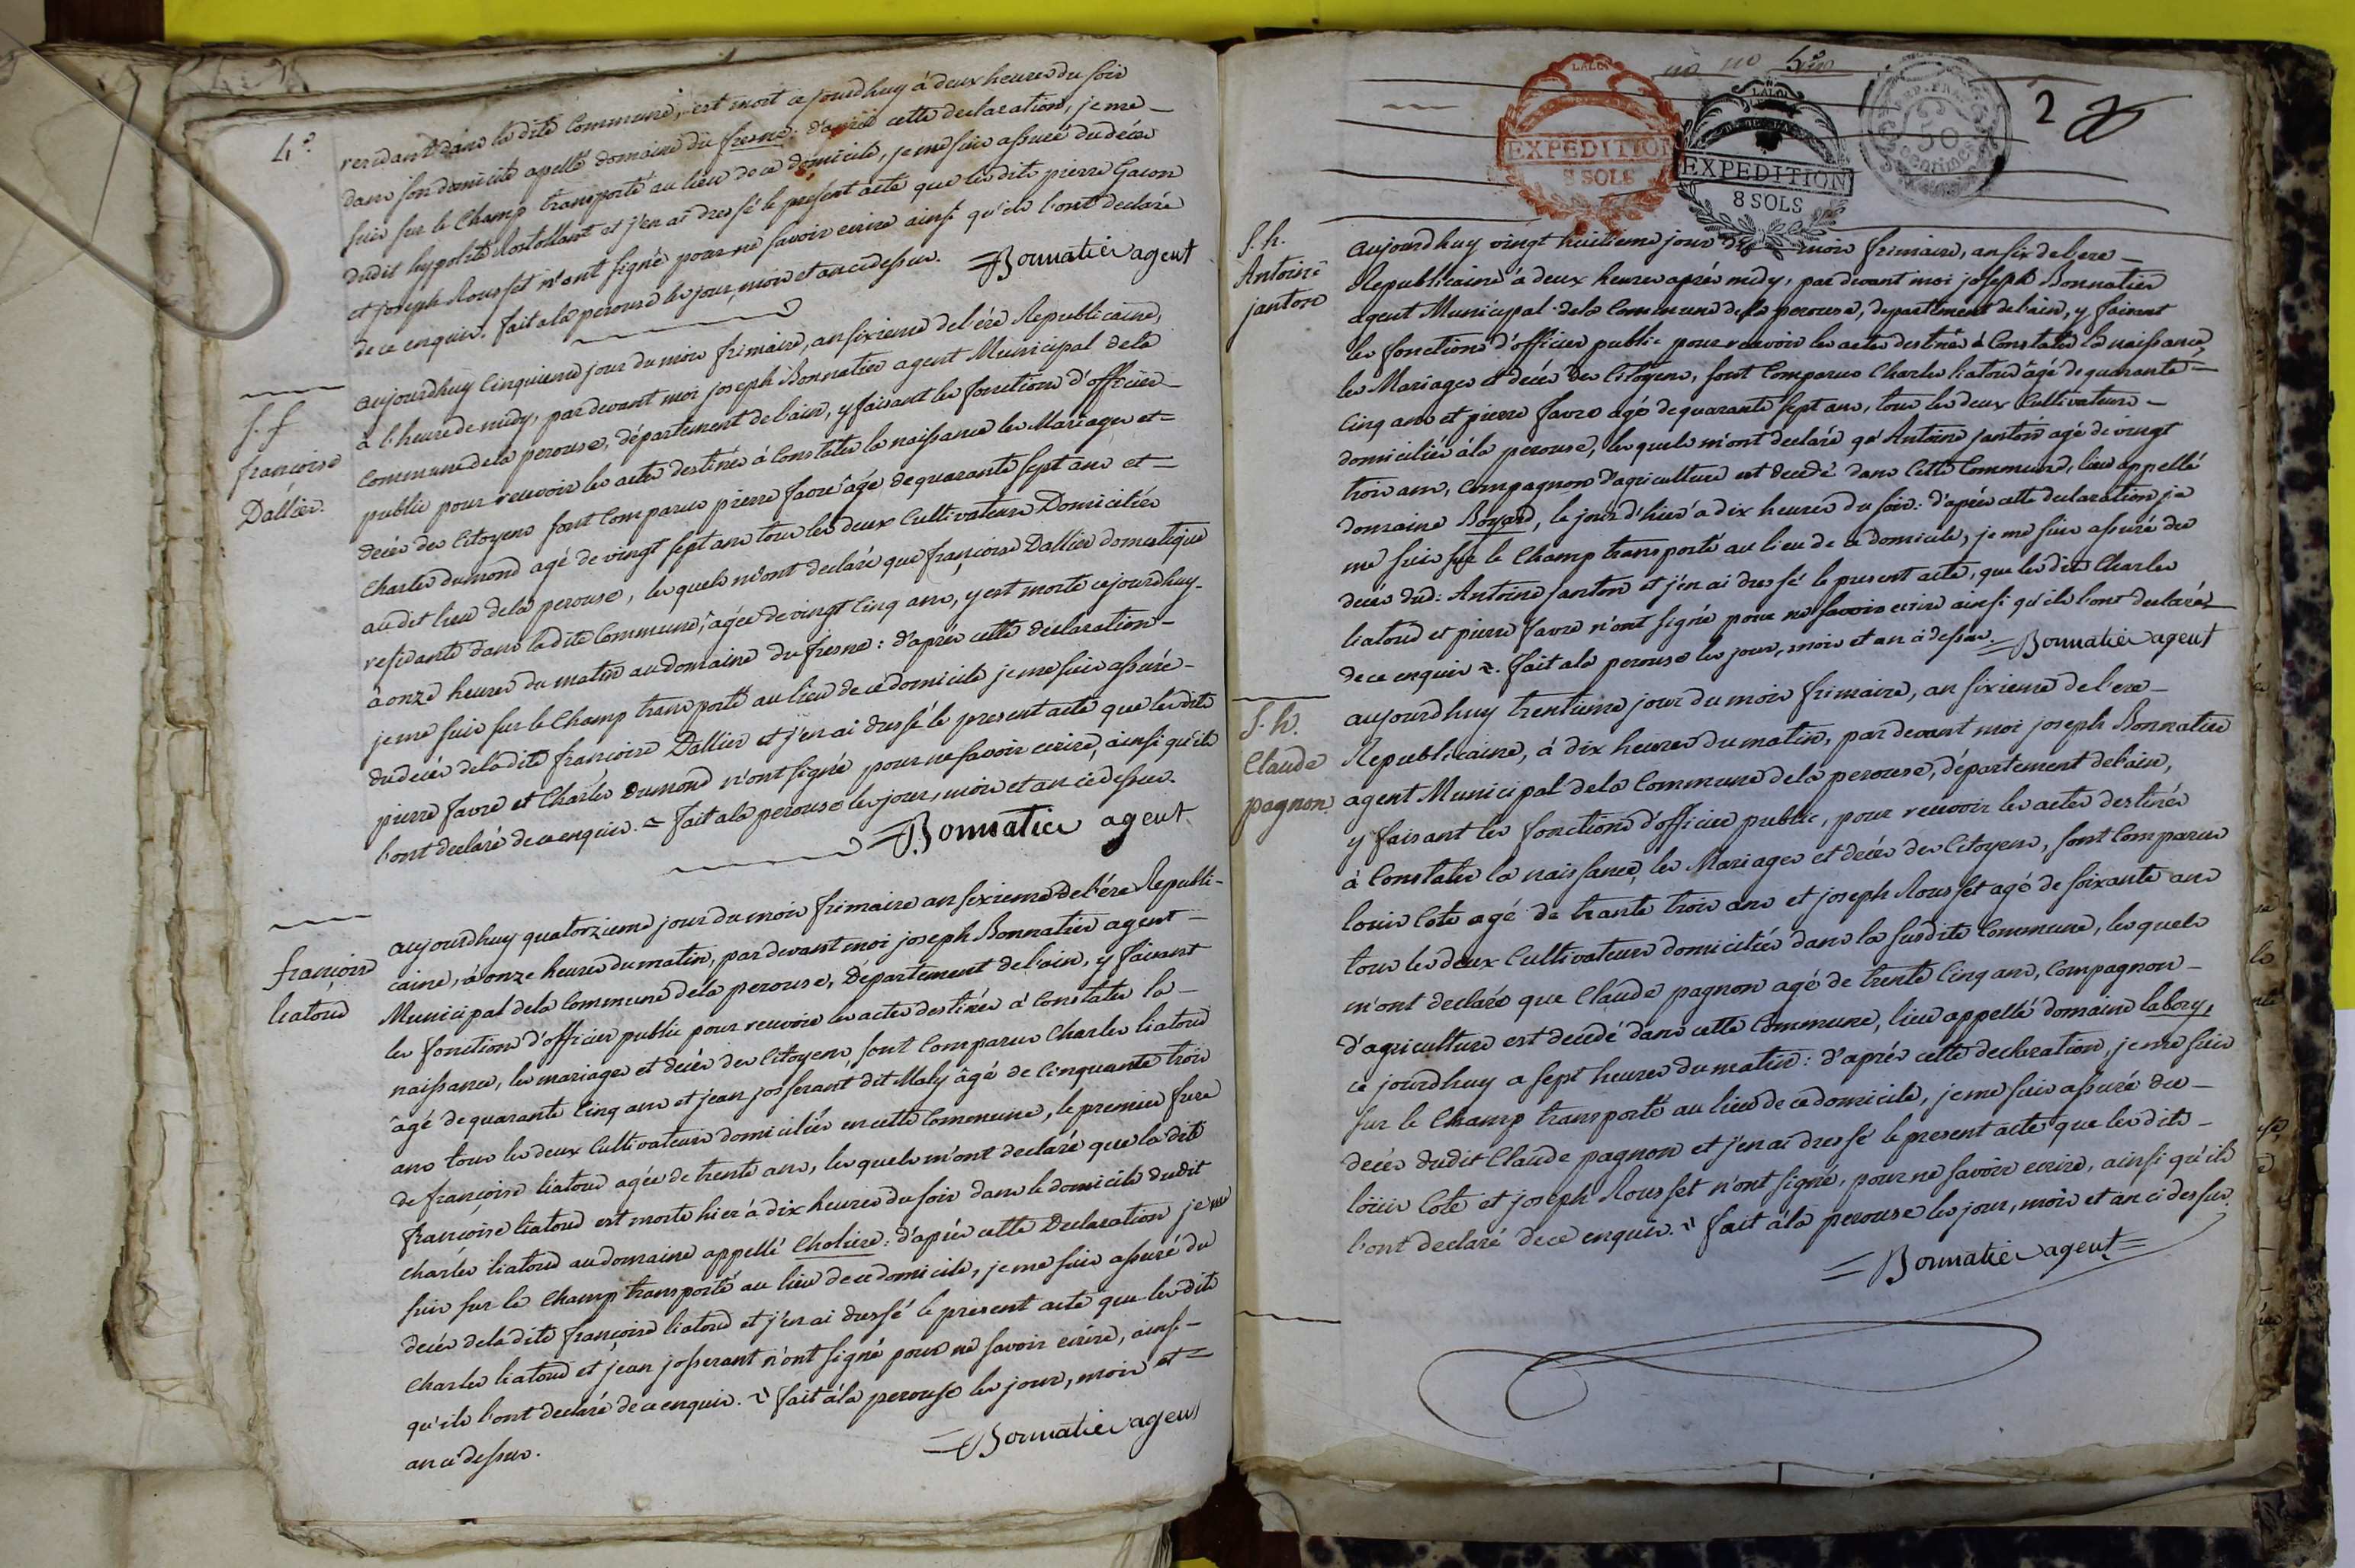 4.º
residant dans la dite Commune, est mort ce jourdhuy à deux heures du soir
dans son domicile apellé domaine du fresne: d'après cette declaration, je me
suis sur le Champ transporté au lieu de ce domicile, je me suis assuré du décès
dudit hypolite et j'en ai dressé le present acte que les dits pierre Gacon
et joseph Rousset n'ont signé pour ne savoir ecrire ainsi qu'ils l'ont declaré
de ce enquis. fait a la perouse les jour, mois et an ci dessus. Bonnatier agent
S. f
françoise
Dallier.
aujourdhuy Cinquieme jour du mois frimaire, an sixieme de l'ére Republicaine,
à l'heure de midy, par devant moi joseph Bonnatier agent Municipal de la
Commune de la perouse, département de l'ain, y faisant les fonctions d'officier
public pour recevoir les actes destinés à Constater la naissance les Mariages et
decès des Citoyens sont Comparus pierre favre âgé de quarante sept ans et
Charles dumond agé de vingt sept ans tous les deux Cultivateurs Domiciliés
au dit lieu de la perouse, les quels m'ont declaré que françoise Dallier domestique
residante dans la dite Commune, agée de vingt Cinq ans, y est morte ce jourdhuy
à onze heures du matin au domaine du fresne: d'après cette declaration
je me suis sur le Champ transporté au lieu de ce domicile je me suis assuré
du decès de la dite françoise Dallier et j'en ai dressé le present acte que les dits
pierre favre et Charles Dumond n'ont signé pour ne savoir ecrire, ainsi qu'ils
l'ont declaré de ce enquis. fait a la perouse les jour, mois et an ci dessus.
Bonnatier agent
françoise
liatoud
aujourdhuy quatorzieme jour du mois frimaire an sixieme de l'ére Republi-
caine, à onze heures du matin, par devant moi joseph Bonnatier agent
Municipal de la Commune de la perouse, Département de l'ain, y faisant
les fonctions d'officier public pour recevoir les actes destinés à Constater la
naissance, les mariages et decès des Citoyens, sont Comparus Charles liatoud
âgé de quarante Cinq ans et jean josserant dit Maly âgé de Cinquante trois
ans tous les deux Cultivateurs domiciliés en cette Commune, le premier frere
de françoise liatoud agée de trente ans, les quels m'ont declaré que la dite
françoise liatoud est morte hier à dix heures du soir dans le domicile dudit
Charles liatoud au domaine appellé Choliere: d'après cette Declaration je me
suis sur le Champ transporté au lieu de ce domicile, je me suis assuré du
decès de la dite françoise liatoud et j'en ai dressé le present acte que les dits
Charles liatoud et jean josserant n'ont signé pour ne savoir ecrire, ainsi
qu'ils l'ont declaré de ce enquis. fait à la perouse les jour, mois et
an ci dessus.
Bonnatier agent
LALOI
EXPEDITION
8 SOLS
LALOI
EXPEDITION
8 SOLS
50
centimes
2
S. h.
Antoine
janton
aujourdhuy vingt huitieme jour du mois frimaire, an six de l'ere
Republicaine à deux heures après midy, par devant moi joseph Bonnatier
agent Municipal de la Commune de la perouse, departement de l'ain, y faisant
les fonctions d'officier public pour recevoir les actes destinés à Constater la naissance,
les Mariages et decès des Citoyens, sont Comparus Charles liatoud âgé de quarante
Cinq ans et pierre favre agé de quarante sept ans, tous les deux Cultivateurs
domiciliés à la perouse, les quels m'ont declaré qu'Antoine janton agé de vingt
trois ans, Compagnon d'agriculture est decedé dans cette Commune, lieu appellé
domaine Boyard, le jour d'hier à dix heures du soir: d'après cette declaration je
me suis sur le Champ transporté au lieu de ce domicile, je me suis assuré du
decès dud: Antoine janton et j'en ai dressé le present acte, que les dits Charles
liatoud et pierre favre n'ont signé pour ne savoir ecrire ainsi qu'ils l'ont declaré
de ce enquis. fait a la perouse les jour, mois et an ci dessus. Bonnatier agent
S. h.
Claude
pagnon
aujourdhuy trentieme jour du mois frimaire, an sixieme de l'ere
Republicaine, à dix heures du matin, par devant moi joseph Bonnatier
agent Municipal de la Commune de la perouse, département de l'ain,
y faisant les fonctions d'officier public, pour recevoir les actes destinés
à Constater la naissance, les Mariages et decès des Citoyens, sont Comparus
louis Cote agé de trante trois ans et joseph Rousset agé de soixante ans
tous les deux Cultivateurs domiciliés dans la susdite Commune, les quels
m'ont declaré que Claude pagnon agé de trente Cinq ans, Compagnon
d'agriculture est decedé dans cette Commune, lieu appellé domaine labory,
ce jourdhuy a sept heures du matin: d'après cette declaration, je me suis
sur le Champ transporté au lieu de ce domicile, je me suis assuré du
decès dudit Claude pagnon et j'en ai dressé le present acte que les dits
louis Cote et joseph Rousset n'ont signé, pour ne savoir ecrire, ainsi qu'ils
l'ont declaré de ce enquis. fait à la perouse les jour, mois et an ci dessus.
Bonnatier agent